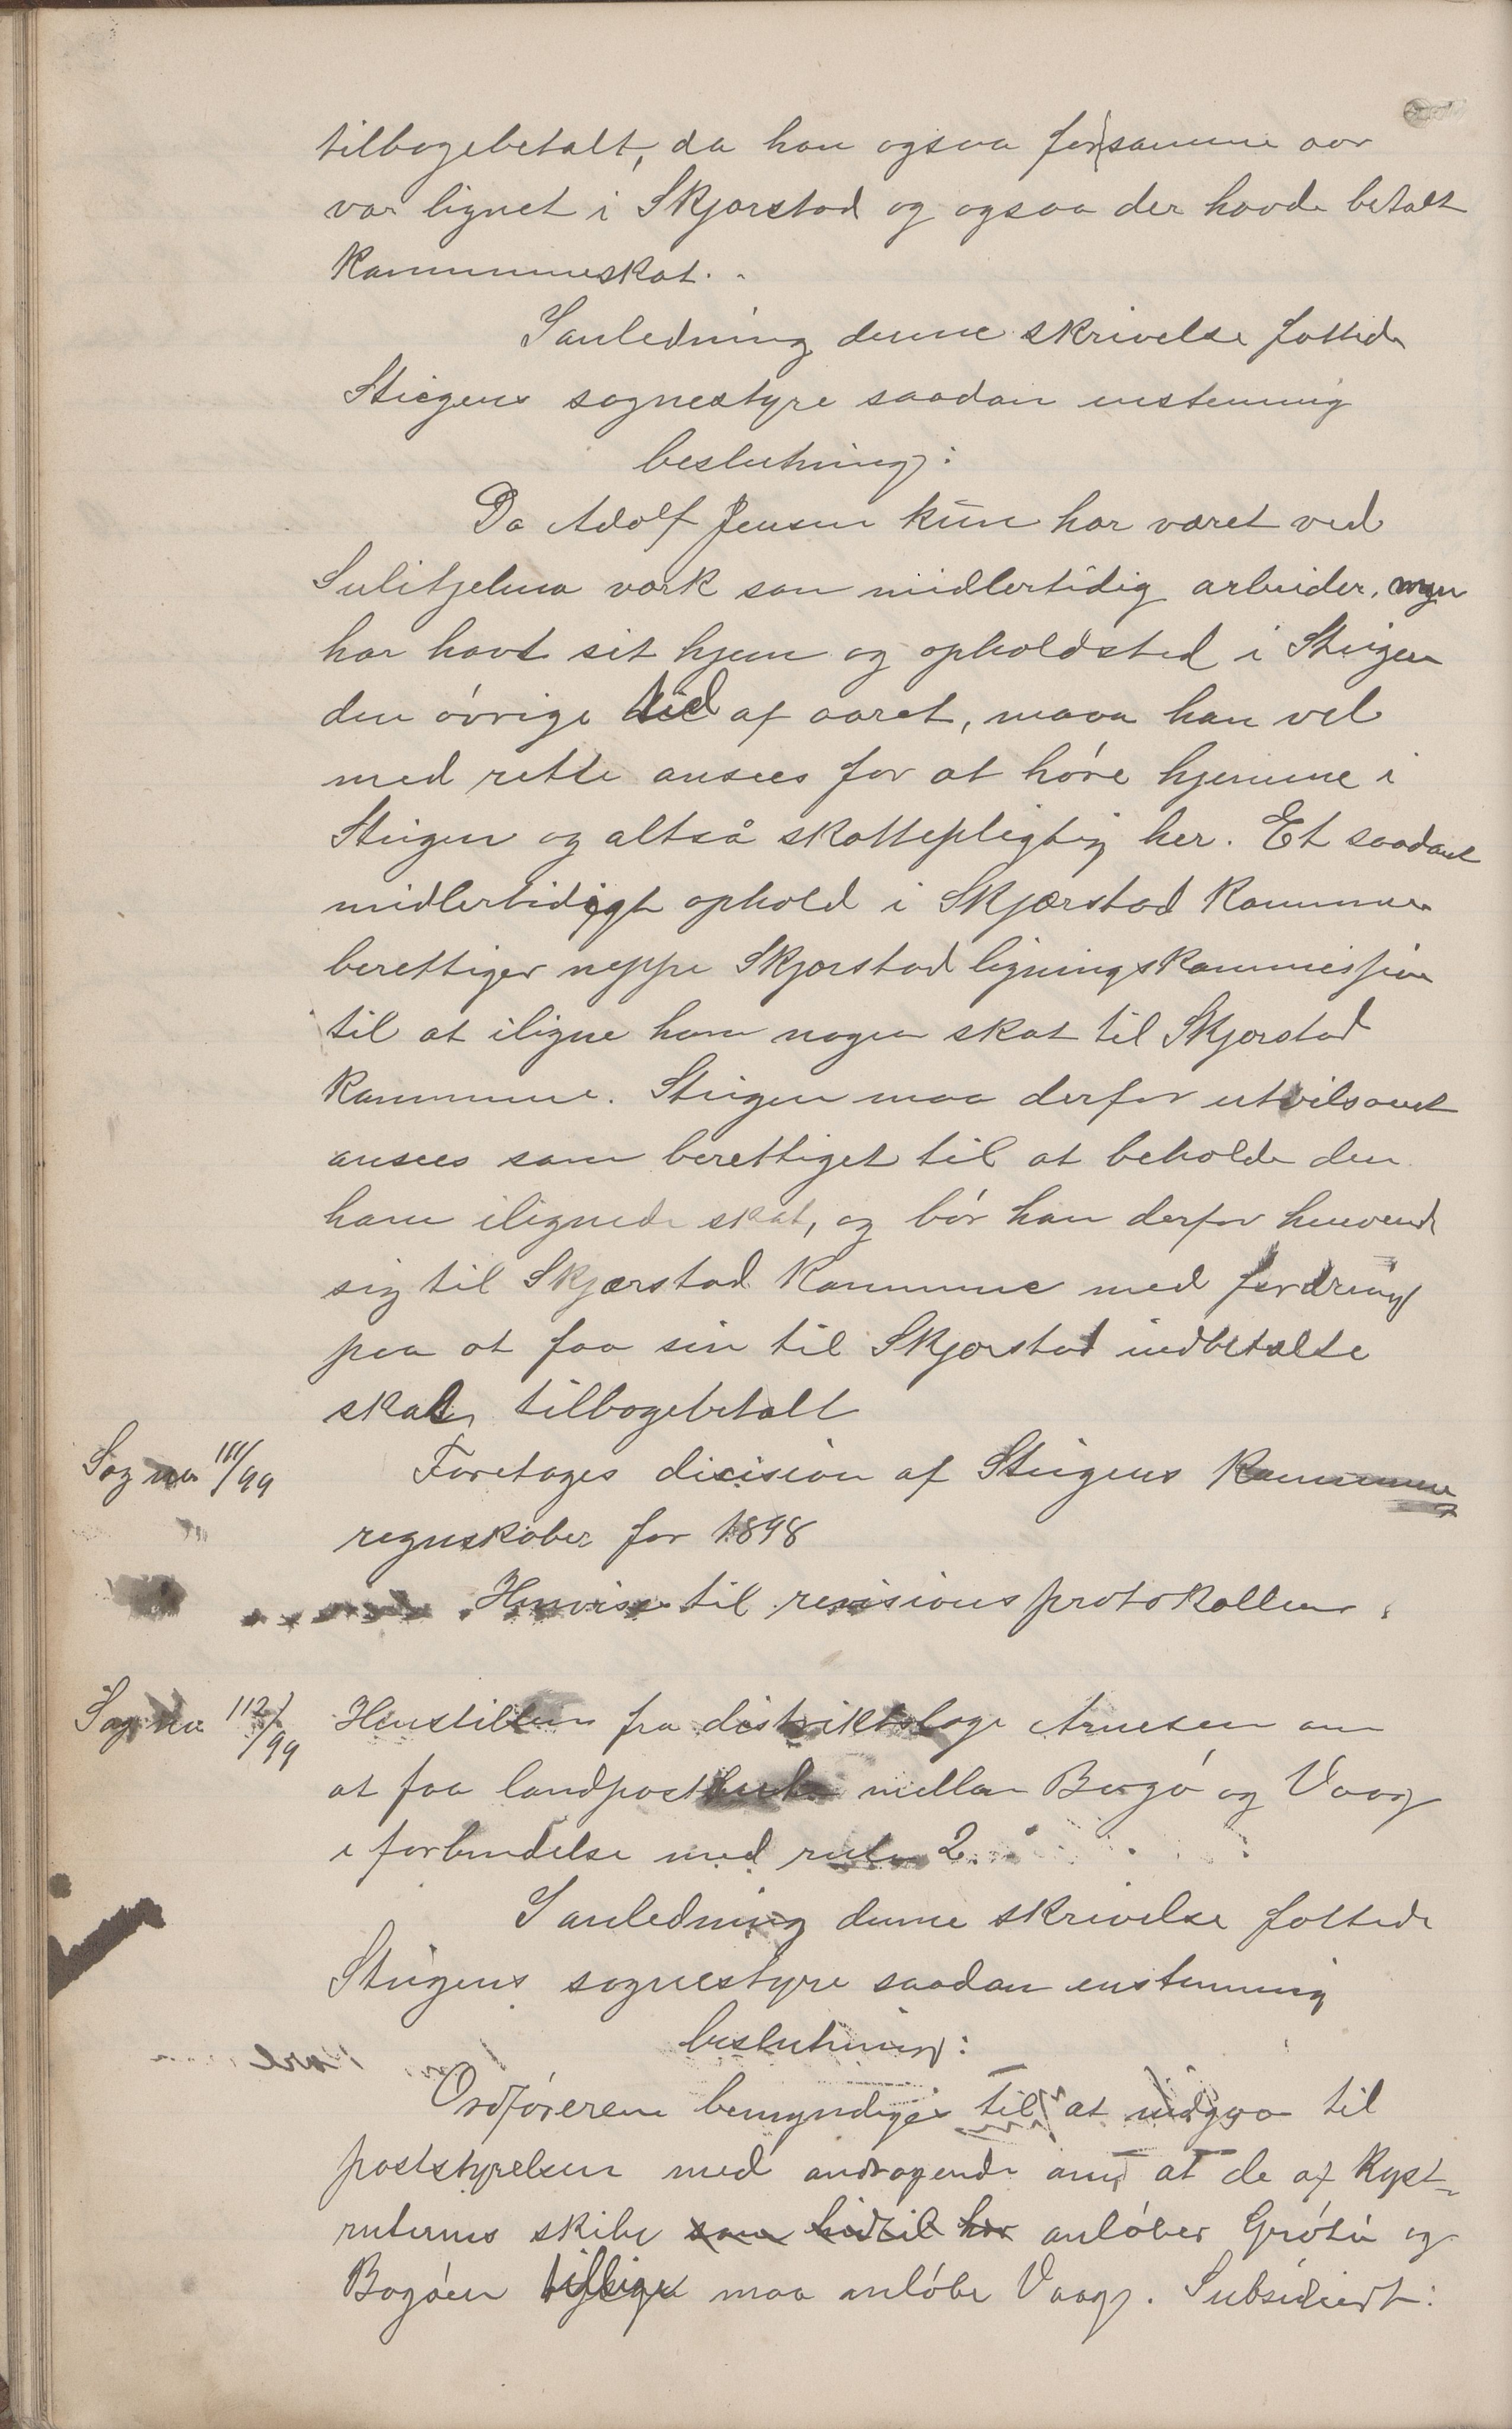 tilbagebetalt, da han ogsaa for samme aar
var lignet i Skjærstad og ogsaa der havde betalt
Kommuneskat.
I anledning denne skrivelse fattede
Steigens sognestyre saadan enstemmig
beslutning:
Da Adolf Jensen kun har været ved
Sulitjelma værk som midlertidig arbeider, men
har havt sit hjem og opholdsted i Steigen
den øvrige tid af aaret, maa han vel
med rette ansees for at høre hjemme i
Steigen og altså skattepligtig her. Et saadant
midlertidigt ophold i Skjærstad Kommune
berettiger neppe Skjærstad ligningskommission
til at iligne ham nogen skat til Skjærstad
Kommune. Steigen maa derfor utvilsomt
ansees som berettiget til at beholde den
ham ilignede skat, og bør han derfor henvende
sig til Skjærstad Kommune med fordring
paa at faa sin til Skjærstad indbetalte
skat tilbagebetalt
Sag no 111/99 Foretages decision af Steigens Kommune
regnskaber for 1898
Henvises til revisionsprotokollen.
Sag no 112/99 Henstillen fra distriktslæge Arnesen om
at faa landpost mellem Bogø og Vaag
i forbindelse med rute 2.
I anledning denne skrivelse fattede
Steigens sognestyre saadan enstemmig
beslutning:
Ordføreren bemyndiges til at indgaa til
poststyrelsen med andragende om at de af Kyst-
ruternes skibe som hidtil har anløber Grøtø og
Bogøen tillige maa anløbe Vaag. Subsidiært: